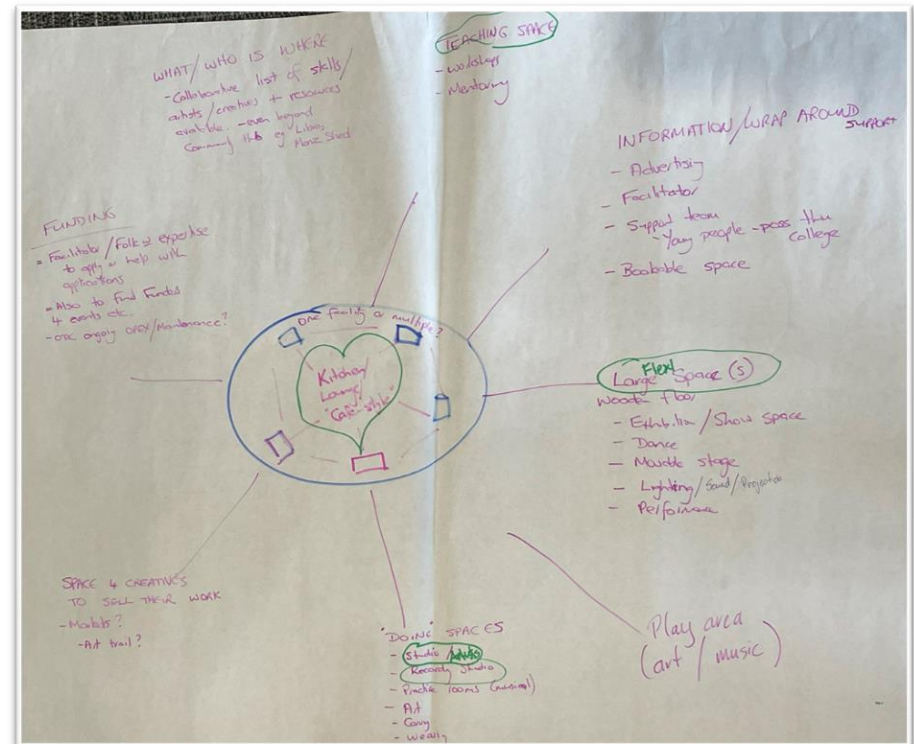 TEACHING SPACE
- Workshops
- Mentoring
WHAT/WHO IS WHERE
- Collaborative list of skills/
artists/creatives + resources
available. - even beyond
Community Hub eg Library
Menz Shed
INFORMATION/WRAP AROUND
SUPPORT
- Advertising
- Facilitator
- Support team
- Young people - pass thru
College
- Bookable space
FUNDING
- Facilitator/Folk expertise
to apply or help with
applications
- Also to find funds
4 events etc.
- ongoing OPEX/Maintenance?
One facility or multiple?
Kitchen/
Lounge/
"Cafe-style"
Flexi
Large Space (s)
Wooden floor
- Exhibition / Show space
- Dance
- Movable stage
- Lighting/Sound/Projection
- Performance
SPACE 4 CREATIVES
TO SELL THEIR WORK
- Markets?
- Art trail?
"DOING" SPACES
- Studio /
- Recording Studio
- Practice rooms (musical)
- Art
- Carving
- Weaving
Play area
(art / music)